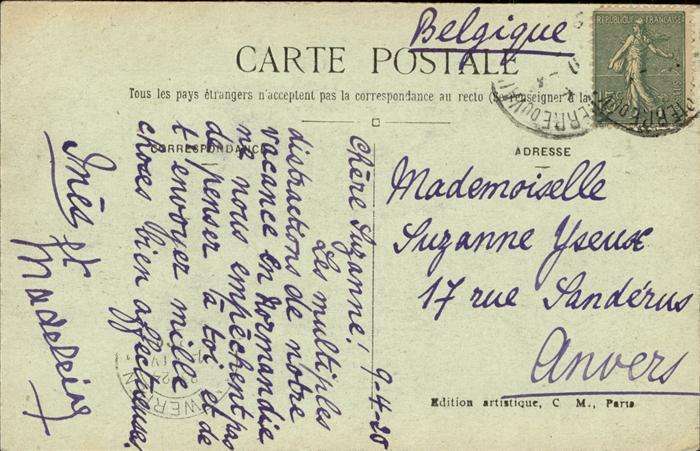 Belgique
CARTE POSTALE
RÉPUBLIQUE FRANÇAISE
Tous les pays étrangers n'acceptent pas la correspondance au recto (Se renseigner à la
CORRESPONDANCE
ADRESSE
9-4-20
Chère Suzanne!
Les multiples
distractions de notre
vacance en Normandie
ne nous empêchent pas
de penser à toi et de
t'envoyer mille
choses bien affectueuses.
Inès et
Madeleine
Mademoiselle
Suzanne Yseux
17 rue Sandérus
Anvers
Edition artistique, C. M., Paris